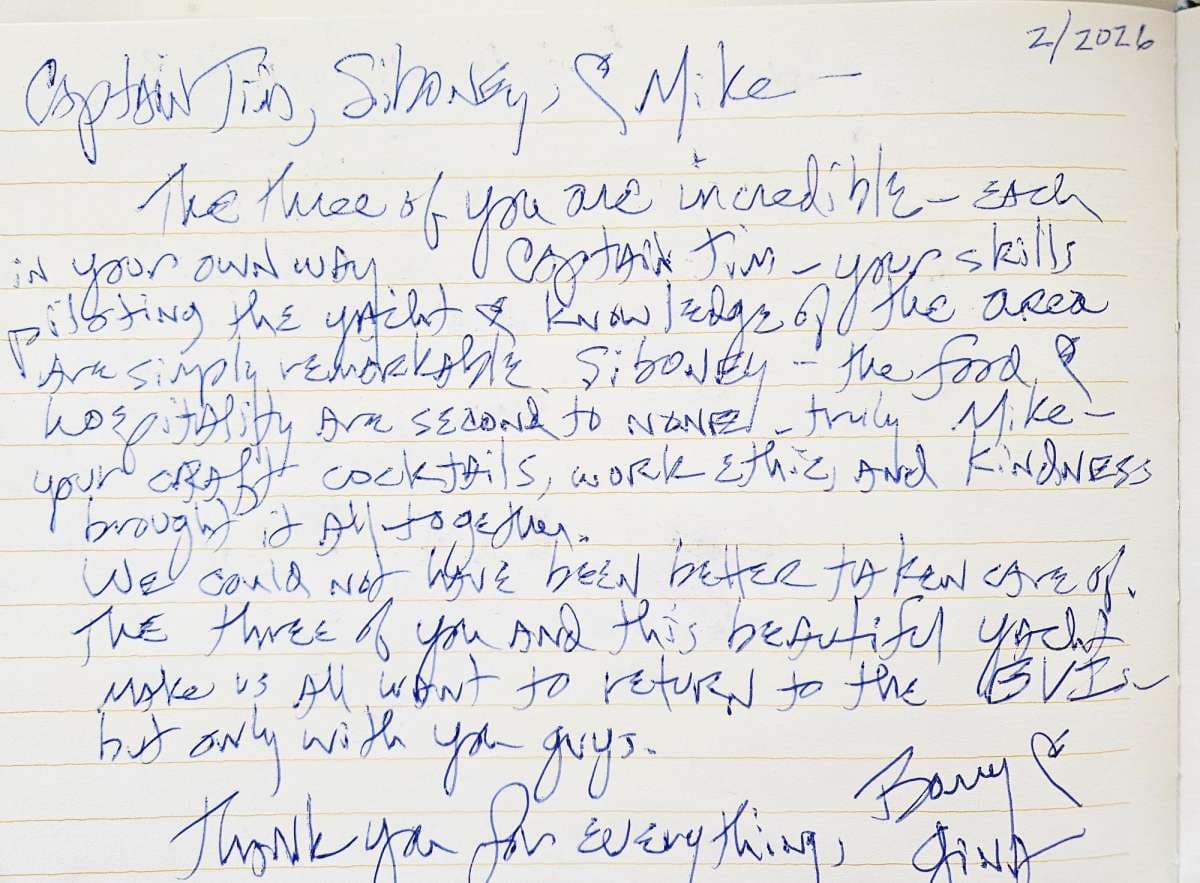 2/2026
Captain Tim, Siboney, & Mike –
The three of you are incredible – each
in your own way Captain Tim – your skills
piloting the yacht & knowledge of the area
are simply remarkable. Siboney – the food &
hospitality are second to none – truly Mike –
your craft cocktails, work ethic, and kindness
brought it all together.
We could not have been better taken care of.
The three of you and this beautiful yacht
make us all want to return to the BVI –
but only with you guys.
Thank you for everything,
Barry &
Gina